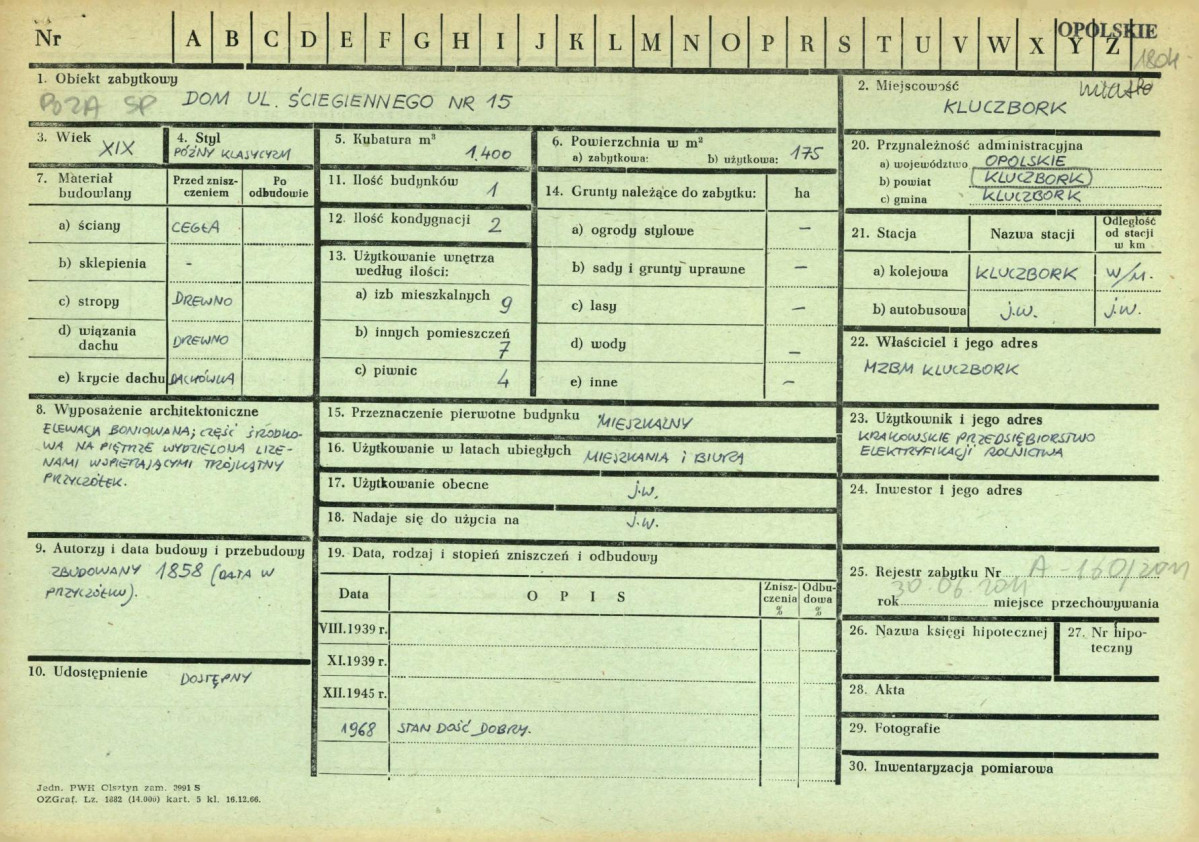 Nr A B C D E F G H I J K L M N O P R S T U V W X Y Z
OPOLSKIE
1804
1. Obiekt zabytkowy
POZA SP DOM UL. ŚCIEGIENNEGO NR 15
2. Miejscowość
miasto
KLUCZBORK
3. Wiek
XIX
4. Styl
PÓŹNY KLASYCYZM
5. Kubatura m³
1.400
6. Powierzchnia w m²
a) zabytkowa: b) użytkowa: 175
7. Materiał budowlany
Przed zniszczeniem
Po odbudowie
a) ściany CEGŁA
b) sklepienia -
c) stropy DREWNO
d) wiązania dachu DREWNO
e) krycie dachu DACHÓWKA
8. Wyposażenie architektoniczne
ELEWACJA BONIOWANA; CZĘŚĆ ŚRODKO-
WA NA PIĘTRZE WYDZIELONA LIZE-
NAMI WSPIERAJĄCYMI TRÓJKĄTNY
PRZYCZÓŁEK.
9. Autorzy i data budowy i przebudowy
ZBUDOWANY 1858 (DATA W
PRZYCZÓŁKU).
10. Udostępnienie
DOSTĘPNY
11. Ilość budynków 1
12. Ilość kondygnacji 2
13. Użytkowanie wnętrza
według ilości:
a) izb mieszkalnych 9
b) innych pomieszczeń 7
c) piwnic 4
14. Grunty należące do zabytku: ha
a) ogrody stylowe -
b) sady i grunty uprawne -
c) lasy -
d) wody -
e) inne -
15. Przeznaczenie pierwotne budynku MIESZKALNY
16. Użytkowanie w latach ubiegłych MIESZKANIA I BIURA
17. Użytkowanie obecne j.w.
18. Nadaje się do użycia na j.w.
19. Data, rodzaj i stopień zniszczeń i odbudowy
Data OPIS Zniszczenia % Odbudowa %
VIII.1939 r.
XI.1939 r.
XII.1945 r.
1968 STAN DOŚĆ DOBRY.
20. Przynależność administracyjna
a) województwo OPOLSKIE
b) powiat KLUCZBORK
c) gmina KLUCZBORK
21. Stacja Nazwa stacji Odległość od stacji w km
a) kolejowa KLUCZBORK w/m.
b) autobusowa j.w. j.w.
22. Właściciel i jego adres
MZBM KLUCZBORK
23. Użytkownik i jego adres
KRAKOWSKIE PRZEDSIĘBIORSTWO
ELEKTRYFIKACJI ROLNICTWA
24. Inwestor i jego adres
25. Rejestr zabytku Nr A-160/2011
30.06.2011
rok miejsce przechowywania
26. Nazwa księgi hipotecznej
27. Nr hipo-
teczny
28. Akta
29. Fotografie
30. Inwentaryzacja pomiarowa
Jedn. PWH Olsztyn zam. 2991 S
OZGraf. Lz. 1882 (14.000) kart. 5 kl. 16.12.66.